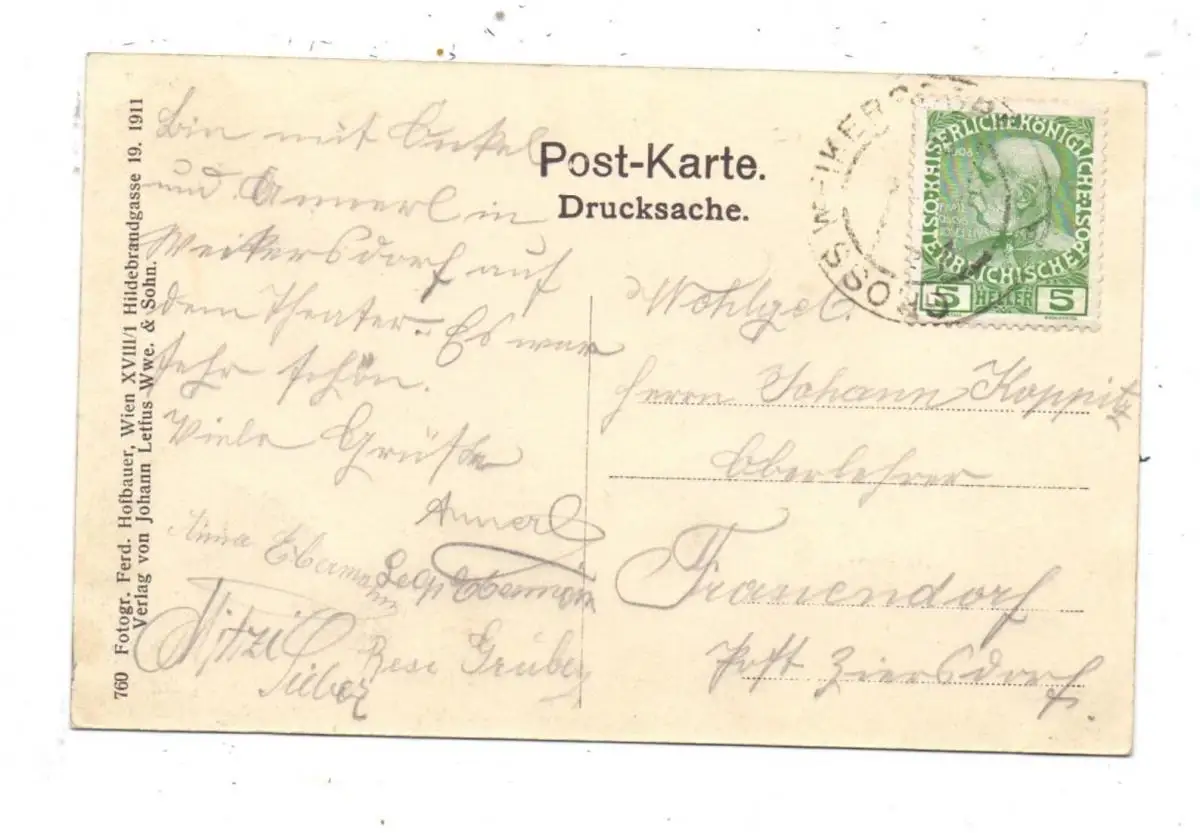 760 Fotogr. Ferd. Hofbauer, Wien XVIII/1 Hildebrandgasse 19. 1911
Verlag von Johann Letfus Wwe. & Sohn.
Bin mit Onkel
und Annerl in
Weikersdorf auf
dem Theater. Es war
sehr schön.
Viele Grüße
Annerl
Anna Ebermann
Leop Ebermann
Mitzi
Rese Gruber
Post-Karte.
Drucksache.
GROSSWEIKERSDORF
KAISERLICHE KÖNIGLICHE ÖSTERREICHISCHE POST
1908
5 HELLER 5
Wohlgeb.
Herrn Johann Koppitz
Oberlehrer
Frauendorf
Post Ziersdorf.